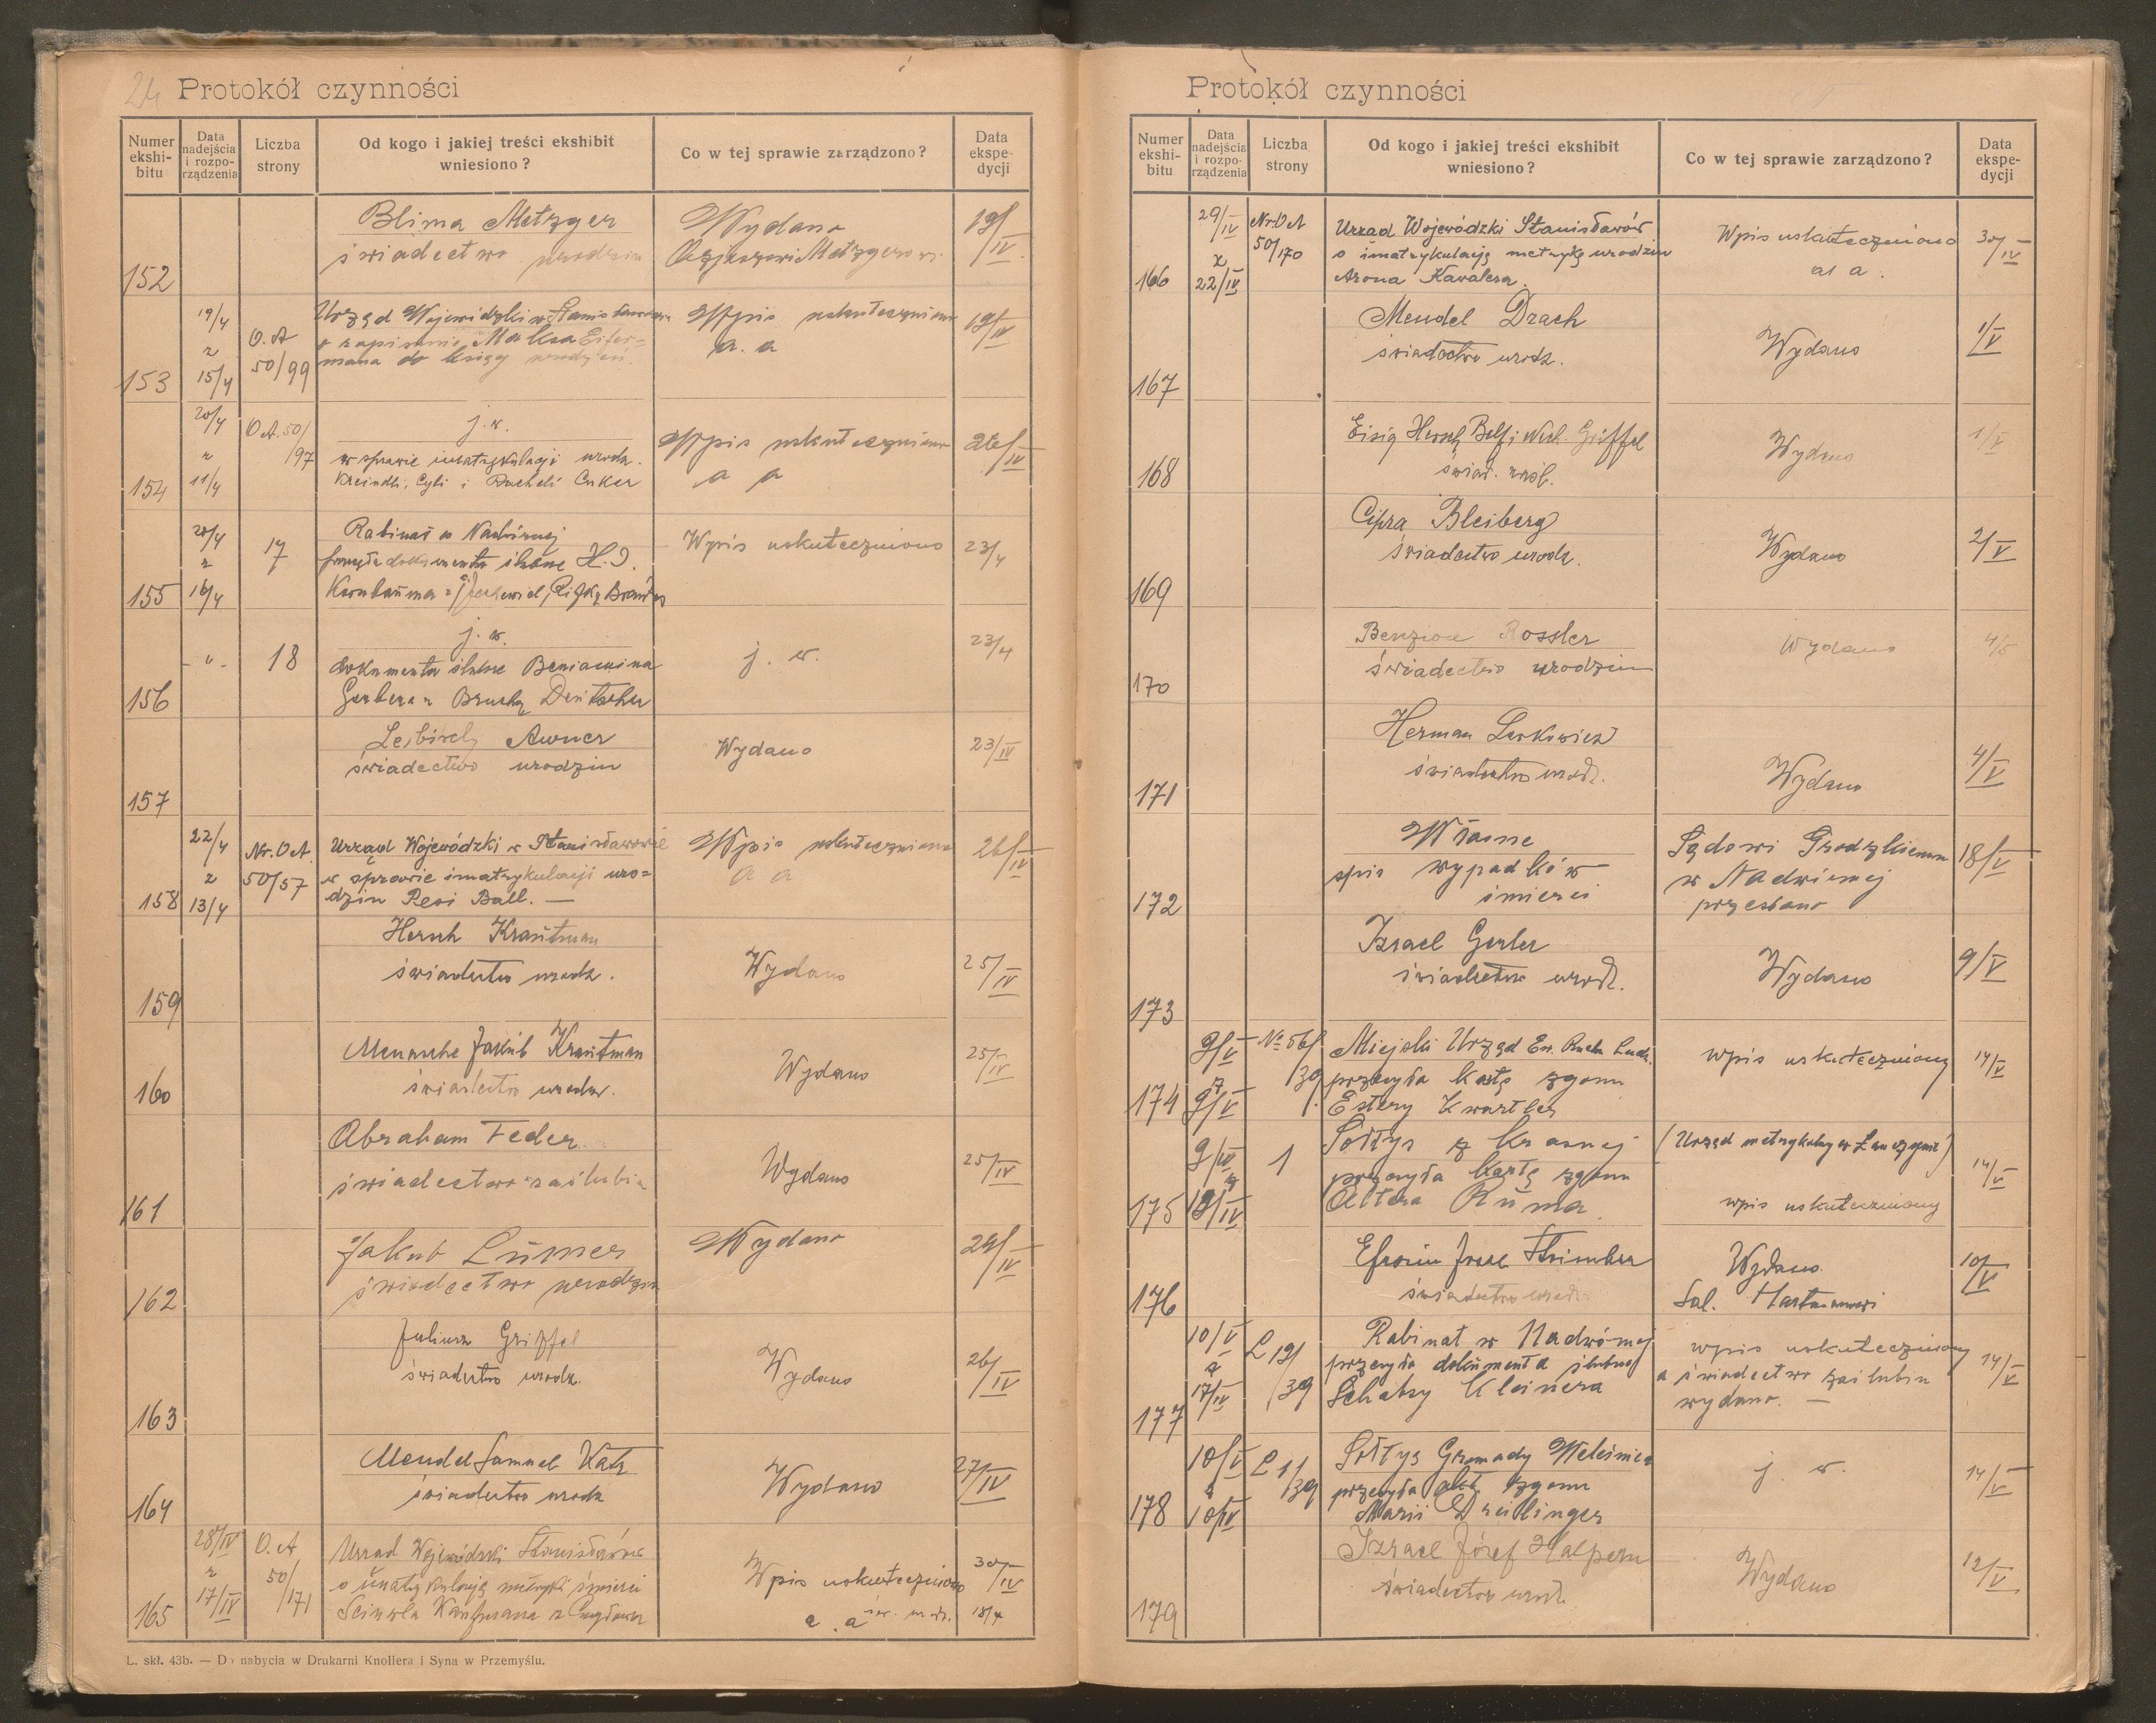 24 Protokół czynności
Numer ekshi-bitu
Data nadejścia i rozpo-rządzenia
Liczba strony
Od kogo i jakiej treści ekshibit wniesiono?
Co w tej sprawie zarządzono?
Data ekspe-dycji
152 Blima Metzger Wydano 19/IV
świadectwo urodzin Metzgerowi
153 19/4 z 15/4 O.A 50/99 Urząd Wojewódzki w Stanisławowie Wpis uskuteczniono 19/IV
o zapisanie Maksa Eifer= a. a
mana do księgi urodzeń
154 20/4 z 11/4 O.A. 50/97 j. w. Wpis uskuteczniono 26/IV
w sprawie imatrykulacji urodz. a a
Kreindli, Cyli i Racheli Cuker
155 20/4 z 16/4 17 Rabinat w Nadwórnej Wpis uskuteczniono 23/4
przesyła dokumenta ślubne H. I.
156 - " - 18 j. w. j. w. 23/4
dokumenta ślubne Beniamina
Gerbera z Bruchą Deutscher
157 Leibisch Awner Wydano 23/IV
świadectwo urodzin
158 22/4 z 13/4 Nr. O.A. 50/57 Urząd Wojewódzki w Stanisławowie Wpis uskuteczniono 26/IV
w sprawie imatrykulacji uro= a a
dzin Resi Ball. —
159 Hersch Krautman Wydano 25/IV
świadectwo urodz.
160 Menasche Jakub Krautman Wydano 25/IV
świadectwo urodz.
161 Abraham Feder Wydano 25/IV
świadectwo zaślubin
162 Jakub Lümer Wydano 24/IV
świadectwo urodzin
163 Juliusz Griffel Wydano 26/IV
świadectwo urodz.
164 Mendel Samuel Katz Wydano 27/IV
świadectwo urodz
165 28/IV z 17/IV O.A 50/171 Urząd Wojewódzki Stanisławów Wpis uskuteczniono 30/IV
o imatrykulację metryki śmierci
Kaufmana z a. a 18/4
L. skł. 43b. — Do nabycia w Drukarni Knollera i Syna w Przemyślu.
Protokół czynności
Numer ekshi-bitu
Data nadejścia i rozpo-rządzenia
Liczba strony
Od kogo i jakiej treści ekshibit wniesiono?
Co w tej sprawie zarządzono?
Data ekspe-dycji
166 29/IV z 22/IV Nr. O.A 50/170 Urząd Wojewódzki Stanisławów Wpis uskuteczniono 30/IV
o imatrykulację metrykę urodzin a a.
Arona Kawalera.
167 Mendel Drach Wydano 1/V
świadectwo urodz.
168 Eisig Hersch Griffel Wydano 1/V
świad.
169 Cipra Bleiberg Wydano 2/V
świadectwo urodz.
170 Benzion Rossler Wydano 4/5
świadectwo urodzin
171 Herman Lerkowicz Wydano 4/V
świadectwo urodz.
172 Własne Sądowi Grodzkiemu 18/V
spis wypadków w Nadwórnej
śmierci przesłano
173 Izrael Gerler Wydano 9/V
świadectwo urodz.
174 9/V z 9/V No 56/39 Miejski Urząd Ew. Ruchu Ludn. wpis uskuteczniony 14/V
przesyła kartę zgonu
Estery Kwartler
175 1 Sołtys z Krasnej (Urząd metrykalny w Łanczynie) 14/V
przesyła kartę zgonu
Altera Ruma wpis uskuteczniony
176 Efroim Josel Wydano 10/V
świadectwo urodz. Sal. Hartmanowi
177 10/V z 17/IV L 19/39 Rabinat w Nadwórnej wpis uskuteczniony 14/V
przesyła dokumenta ślubne a świadectwo zaślubin
Schabsy Kleinera wydano. —
178 10/V z 10/IV L 1/39 Sołtys Gromady Weleśnica j. w. 14/V
przesyła akt zgonu
Marii Dreilinger
179 Izrael Józef Halpern Wydano 12/V
świadectwo urodz.